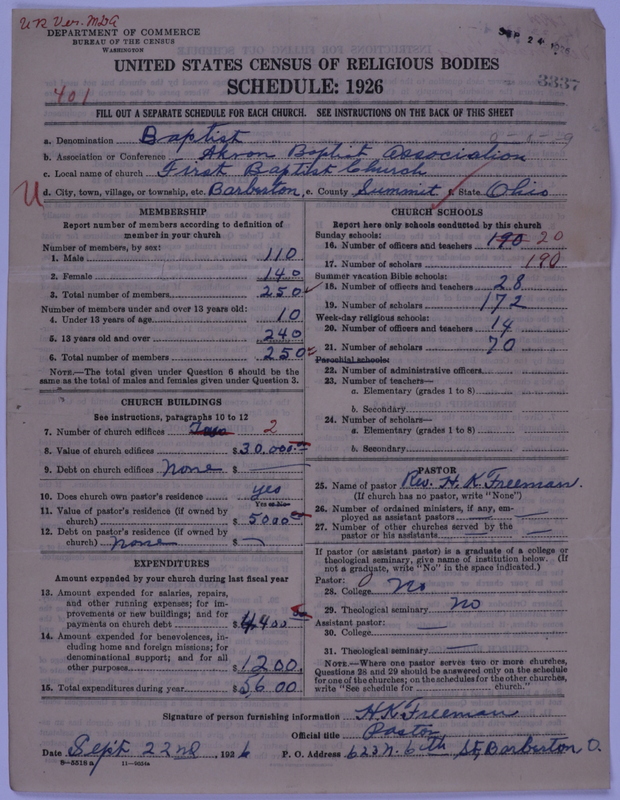 U R Ver. MDA
DEPARTMENT OF COMMERCE
BUREAU OF THE CENSUS
WASHINGTON
SEP 24
UNITED STATES CENSUS OF RELIGIOUS BODIES
SCHEDULE: 1926
3337
401
FILL OUT A SEPARATE SCHEDULE FOR EACH CHURCH. SEE INSTRUCTIONS ON THE BACK OF THIS SHEET
a. Denomination Baptist
b. Association or Conference Akron Baptist Association
c. Local name of church First Baptist Church
U d. City, town, village, or township, etc. Barberton, e. County Summit f. State Ohio
MEMBERSHIP
Report number of members according to definition of member in your church
Number of members, by sex:
1. Male 110
2. Female 140
3. Total number of members 250
Number of members under and over 13 years old:
4. Under 13 years of age 10
5. 13 years old and over 240
6. Total number of members 250
NOTE.—The total given under Question 6 should be the same as the total of males and females given under Question 3.
CHURCH BUILDINGS
See instructions, paragraphs 10 to 12
7. Number of church edifices Two 2
8. Value of church edifices $30,000
9. Debt on church edifices None $
10. Does church own pastor's residence yes
Yes or No
11. Value of pastor's residence (if owned by church) $5000
12. Debt on pastor's residence (if owned by church) none $
EXPENDITURES
Amount expended by your church during last fiscal year
13. Amount expended for salaries, repairs, and other running expenses; for improvements or new buildings; and for payments on church debt $4400
14. Amount expended for benevolences, including home and foreign missions; for denominational support; and for all other purposes $1200
15. Total expenditures during year $5600
CHURCH SCHOOLS
Report here only schools conducted by this church
Sunday schools:
16. Number of officers and teachers 190 20
17. Number of scholars 190
Summer vacation Bible schools:
18. Number of officers and teachers 28
19. Number of scholars 172
Week-day religious schools:
20. Number of officers and teachers 14
21. Number of scholars 70
Parochial schools:
22. Number of administrative officers
23. Number of teachers—
a. Elementary (grades 1 to 8)
b. Secondary
24. Number of scholars—
a. Elementary (grades 1 to 8)
b. Secondary
PASTOR
25. Name of pastor Rev. H. K. Freeman.
(If church has no pastor, write "None")
26. Number of ordained ministers, if any, employed as assistant pastors
27. Number of other churches served by the pastor or his assistants
If pastor (or assistant pastor) is a graduate of a college or theological seminary, give name of institution below. (If not a graduate, write "No" in the space indicated.)
Pastor:
28. College No
29. Theological seminary No
Assistant pastor:
30. College
31. Theological seminary
NOTE.—Where one pastor serves two or more churches, Questions 28 and 29 should be answered only on the schedule for one of the churches; on the schedules for the other churches, write "See schedule for church."
Signature of person furnishing information H K Freeman
Official title Pastor
Date Sept 22nd, 1926 P. O. Address 623 N. 6th St, Barberton O.
8-5518 a 11-9054a